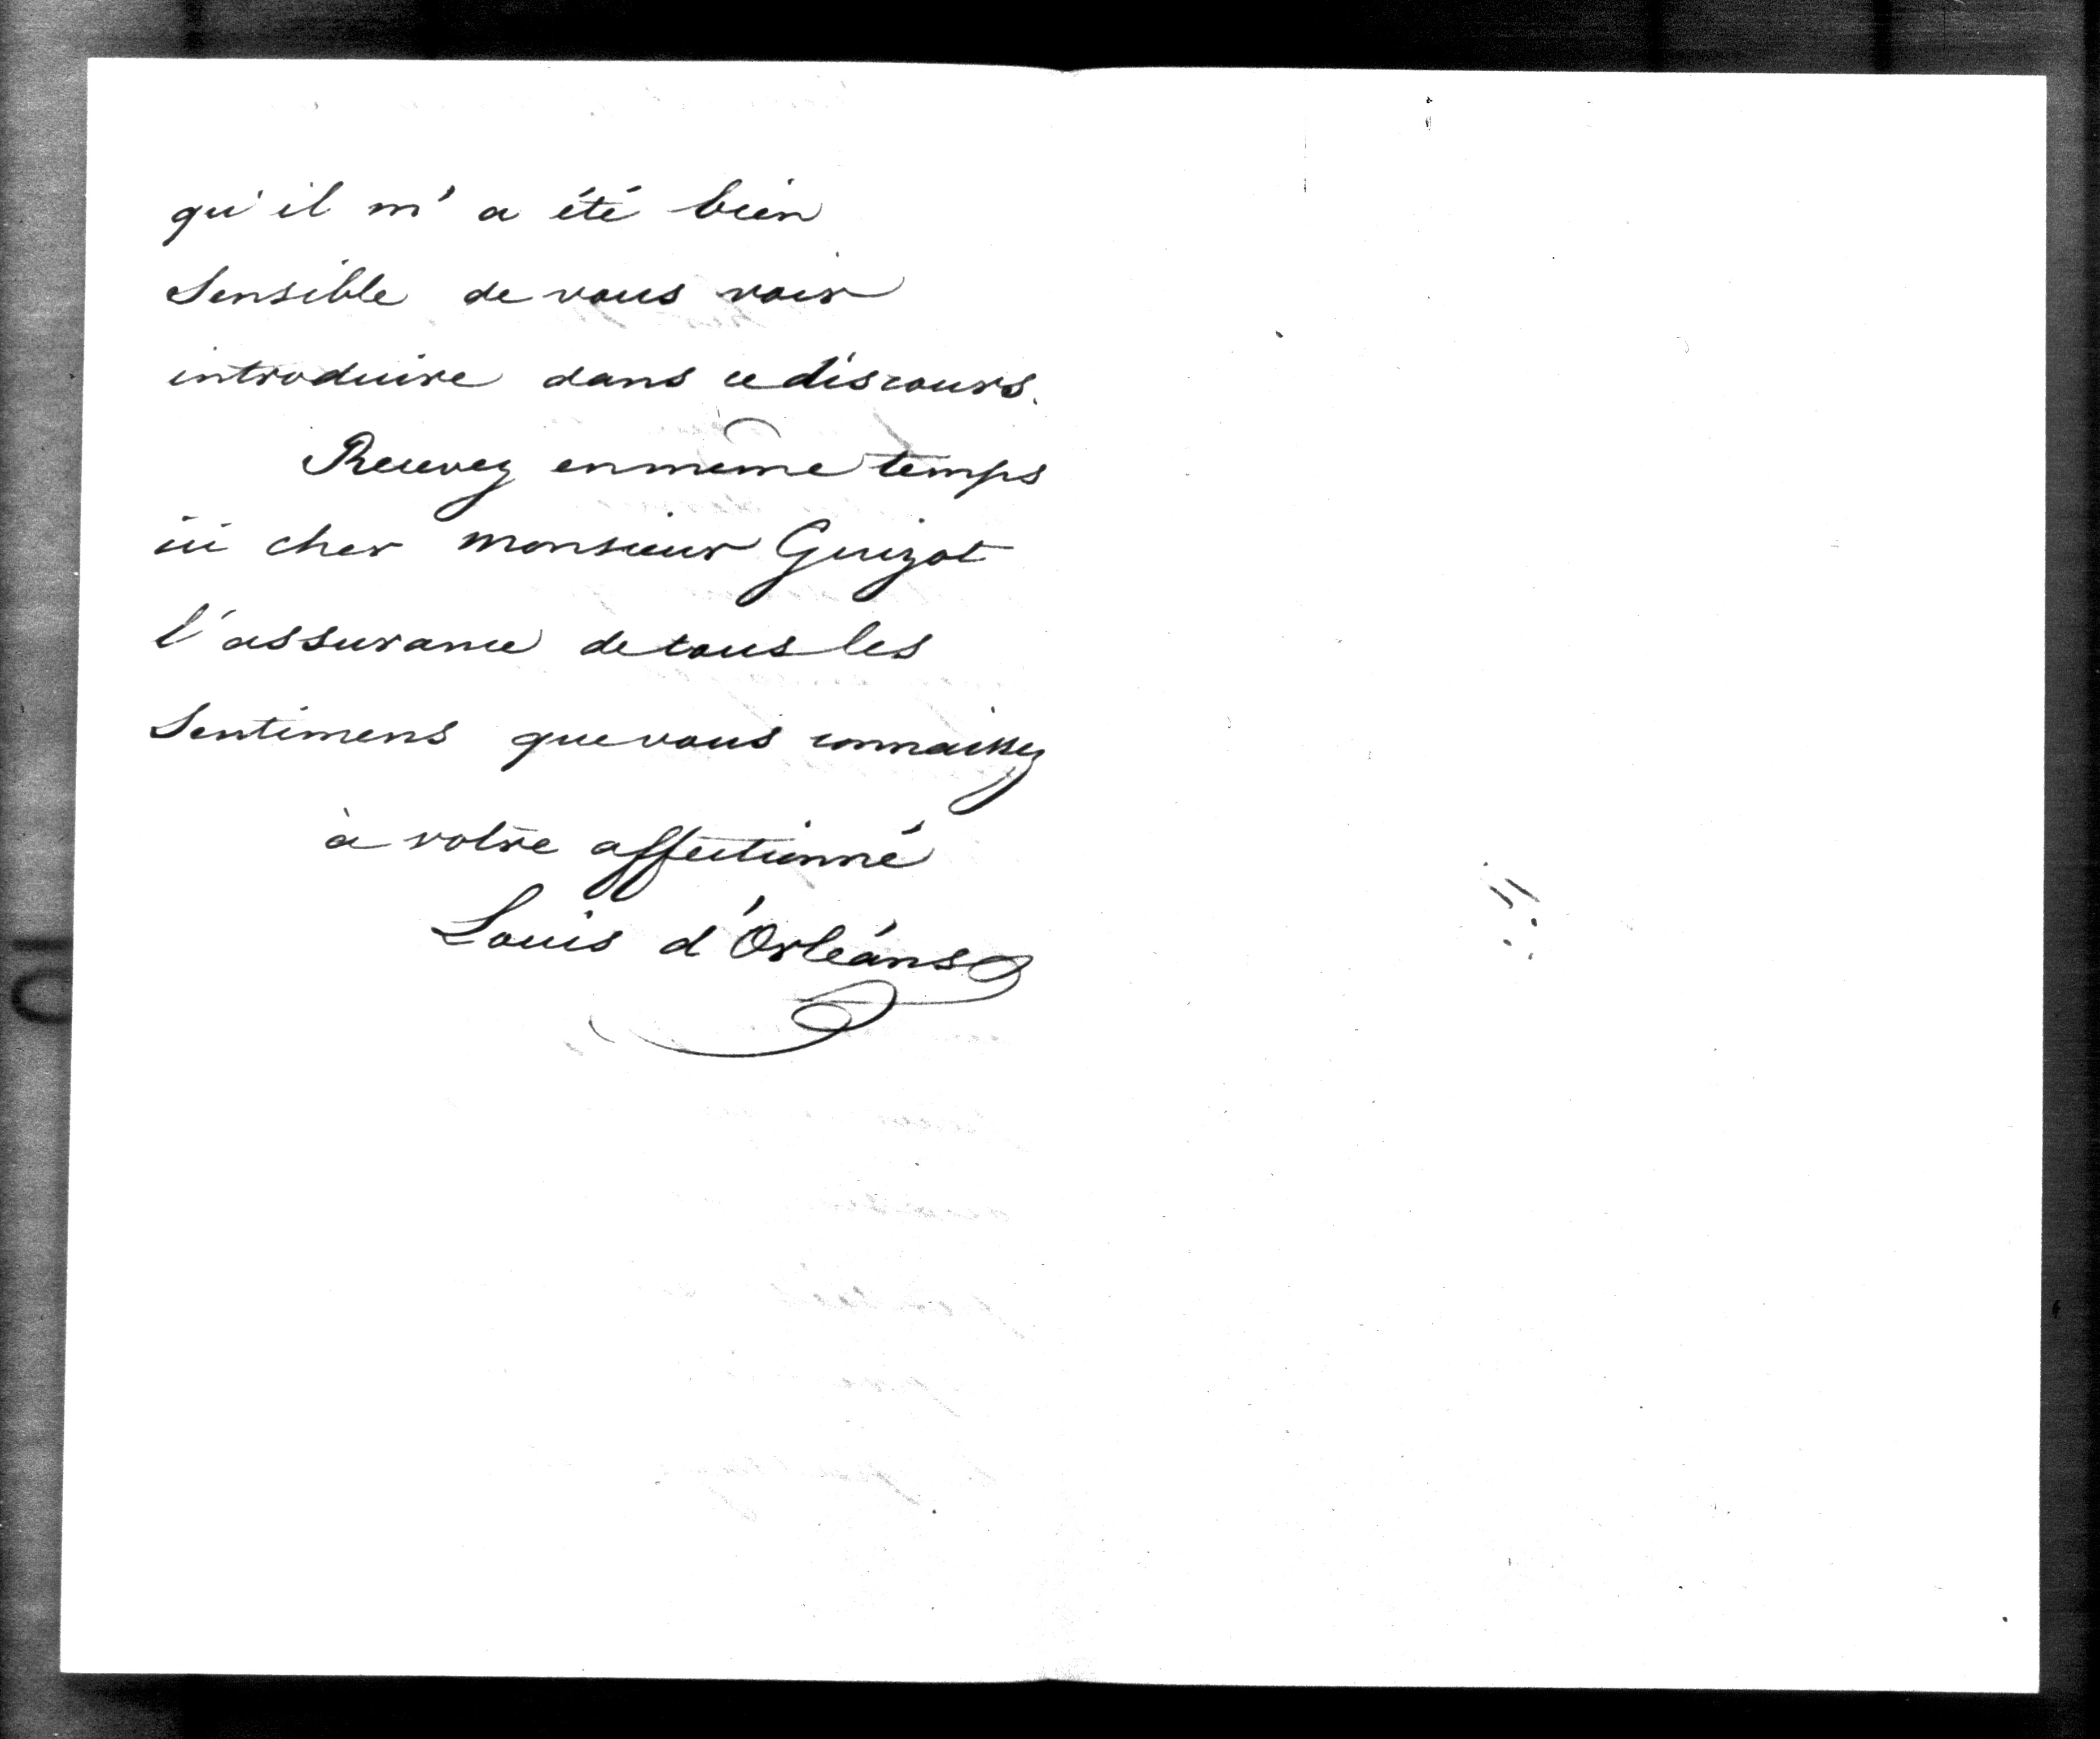 qu'il m'a été bien
sensible de vous voir
introduire dans ce discours.
Recevez en même temps
ici cher monsieur Guizot
l'assurance de tous les
sentimens que vous connaissez
à votre affectionné
Louis d'Orléans